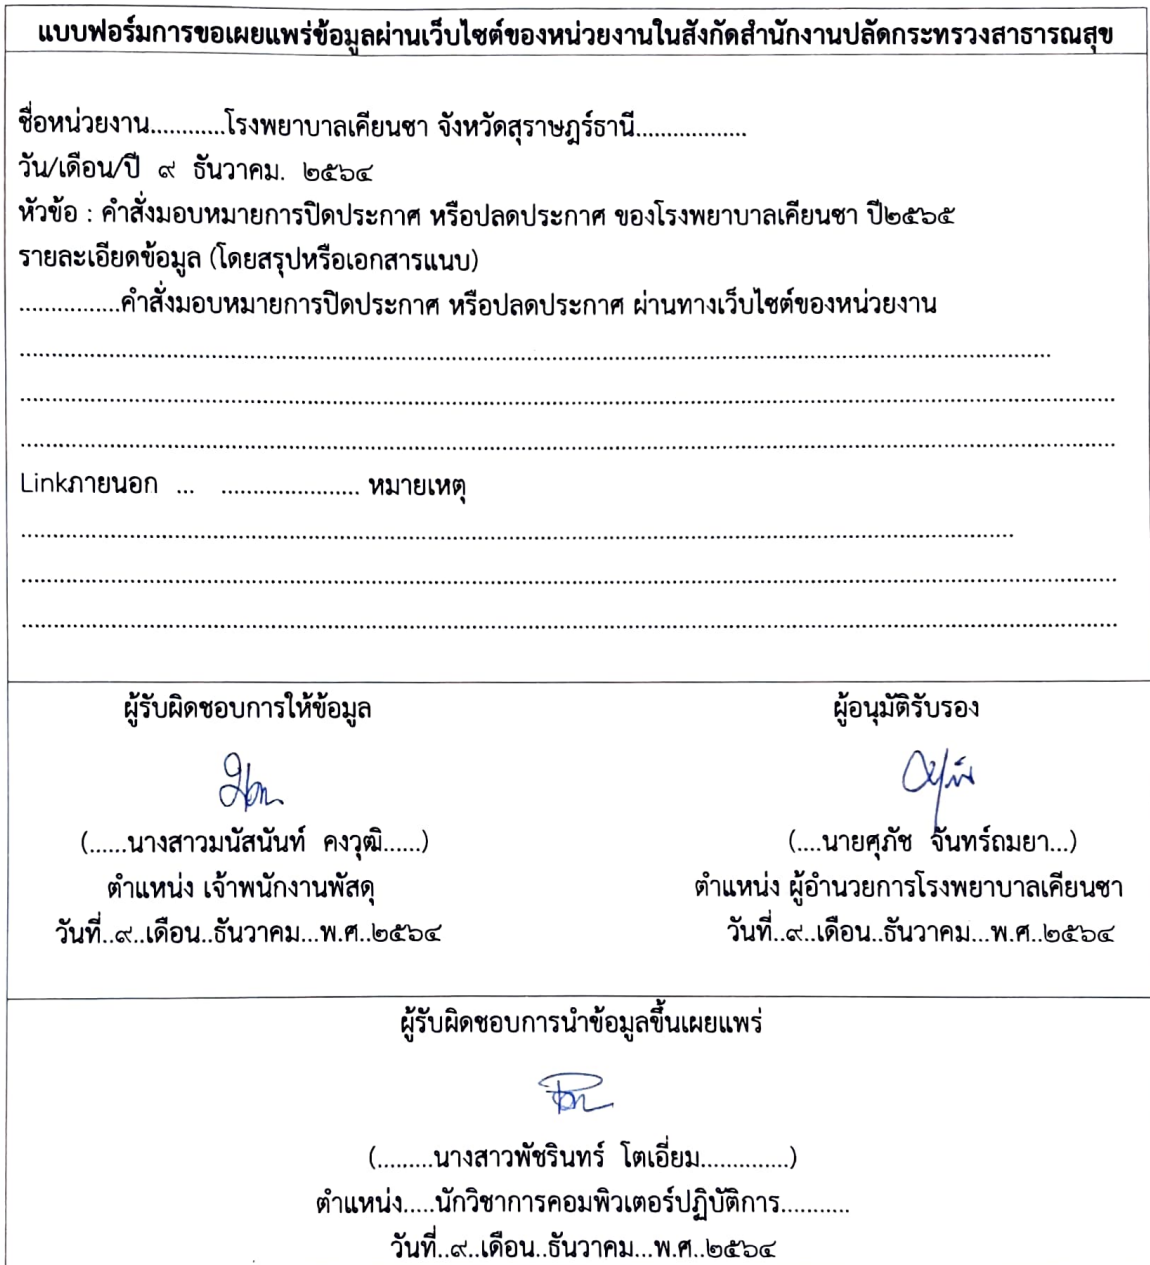 แบบฟอร์มการขอเผยแพร่ข้อมูลผ่านเว็บไซต์ของหน่วยงานในสังกัดสำนักงานปลัดกระทรวงสาธารณสุข
ชื่อหน่วยงาน............โรงพยาบาลเคียนซา จังหวัดสุราษฎร์ธานี..................
วัน/เดือน/ปี ๙ ธันวาคม. ๒๕๖๔
หัวข้อ : คำสั่งมอบหมายการปิดประกาศ หรือปลดประกาศ ของโรงพยาบาลเคียนซา ปี๒๕๖๕
รายละเอียดข้อมูล (โดยสรุปหรือเอกสารแนบ)
................คำสั่งมอบหมายการปิดประกาศ หรือปลดประกาศ ผ่านทางเว็บไซต์ของหน่วยงาน
Linkภายนอก ... ...................... หมายเหตุ
ผู้รับผิดชอบการให้ข้อมูล
(......นางสาวมนัสนันท์ คงวุฒิ......)
ตำแหน่ง เจ้าพนักงานพัสดุ
วันที่..๙..เดือน..ธันวาคม...พ.ศ..๒๕๖๔
ผู้อนุมัติรับรอง
(....นายศุภัช จันทร์ถมยา...)
ตำแหน่ง ผู้อำนวยการโรงพยาบาลเคียนซา
วันที่..๙..เดือน..ธันวาคม...พ.ศ..๒๕๖๔
ผู้รับผิดชอบการนำข้อมูลขึ้นเผยแพร่
(.........นางสาวพัชรินทร์ โตเอี่ยม..............)
ตำแหน่ง.....นักวิชาการคอมพิวเตอร์ปฏิบัติการ...........
วันที่..๙..เดือน..ธันวาคม...พ.ศ..๒๕๖๔